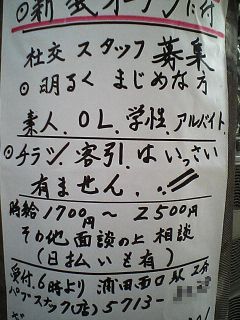 ◎新装オープンに付
社交スタッフ募集
◎明るくまじめな方
素人.OL.学性.アルバイト.
◎チラシ.客引はいっさい
有ません..
時給1700円〜2500円
その他面談の上相談
(日払いも有)
受付.6時より 蒲田西口駅2分
パブスナック(店)5713-